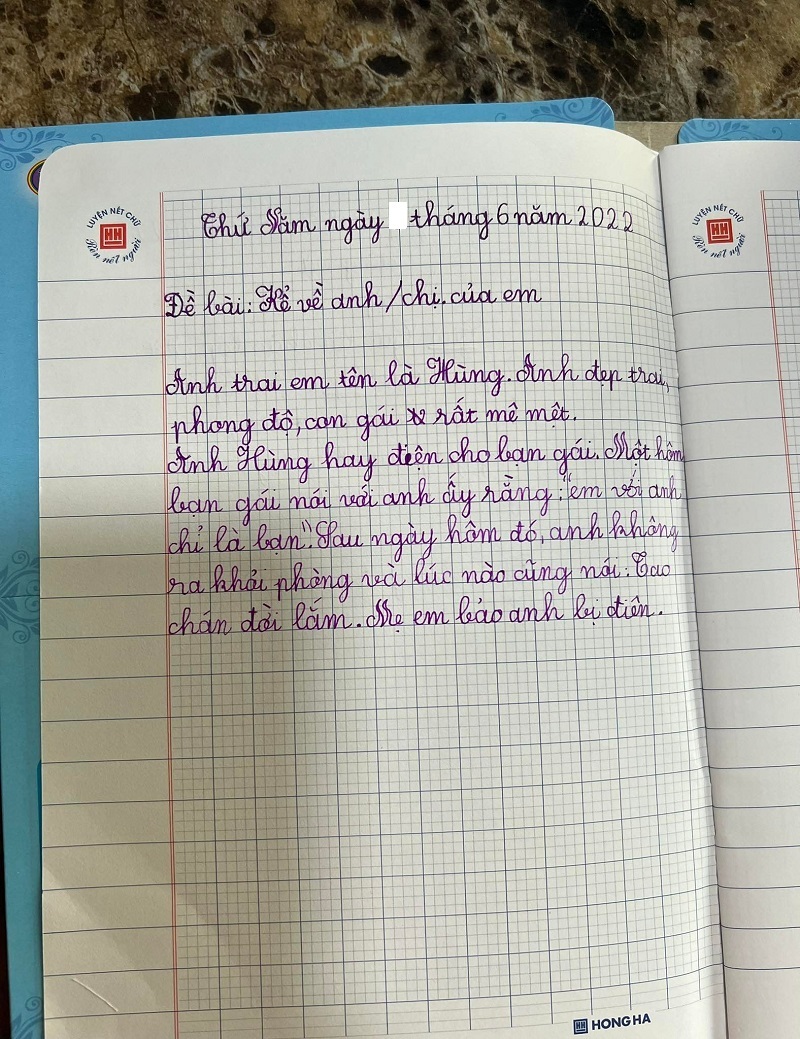 LUYỆN NÉT CHỮ
HH
Rèn nết người
Thứ Năm ngày tháng 6 năm 2022
Đề bài: Kể về anh / chị của em
Anh trai em tên là Hùng. Anh đẹp trai,
phong độ, con gái rất mê mệt.
Anh Hùng hay điện cho bạn gái. Một hôm
bạn gái nói với anh ấy rằng: "em với anh
chỉ là bạn". Sau ngày hôm đó, anh không
ra khỏi phòng và lúc nào cũng nói: Tao
chán đời lắm. Mẹ em bảo anh bị điên.
HH HONG HA
LUYỆN NÉT CHỮ
HH
Rèn nết người